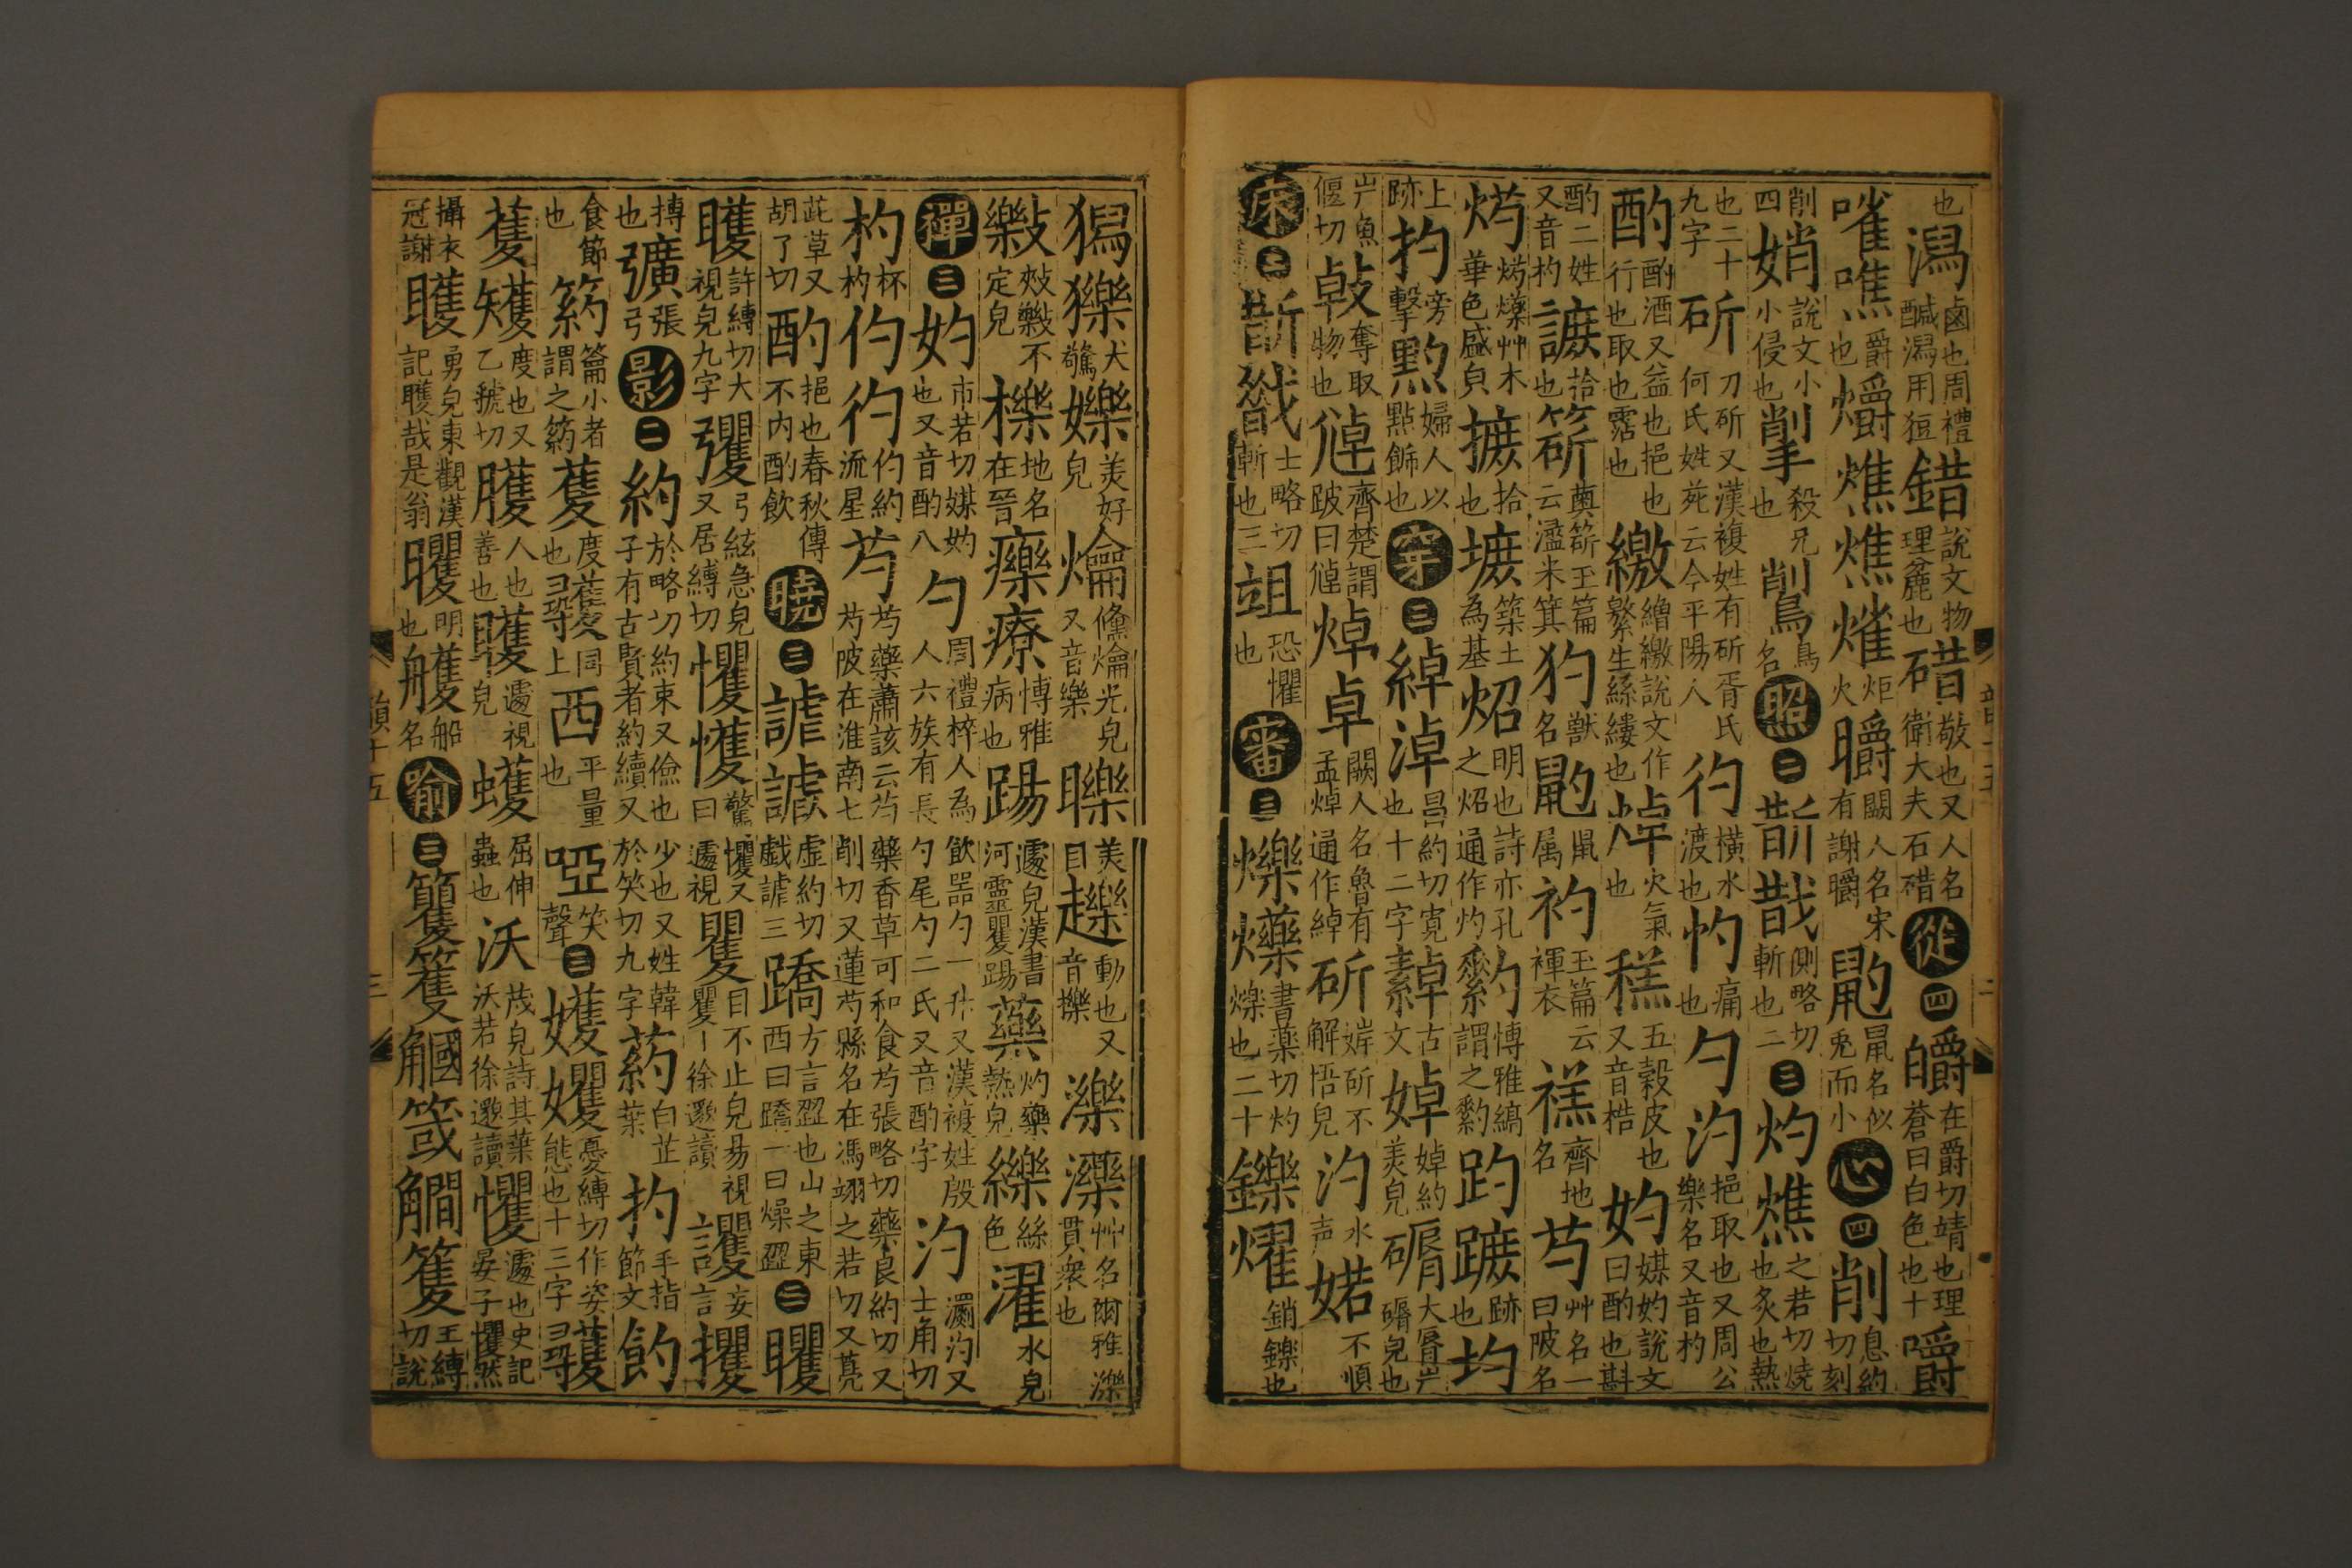 也潟鹵也周禮醎潟用貆錯說文物理麄也碏敬也又衛大夫石碏人名從四皭在爵切靖也理蒼曰白色也十嚼
嗺噍爵也爝燋㷶熣炬火㬭闕人名宋有謝㬭鼩鼠名似兎而小心四削息約切刻
削四娋說文小小侵也㨛殺兄也䴛鳥名照二斮㪚側略切斬也二三灼燋之若切燒也炙也熱
也二十九字斫刀斫又漢複姓有斫胥氏何氏姓苑云今平陽人彴橫水渡也㣿痛也勺汋挹取也又周公樂名又音杓
酌酌酒又益也挹也行也取也霑也繳繒繳說文作繁生絲縷也焯火氣也糕五穀皮也又音梏妁媒妁說文曰酌也斟
酌二姓又音杓謶拾也箌奠箌玉篇云瀊米箕犳獸名鼩鼠属礿玉篇云襌衣禚齊地名芍艸名一曰陂名
焫焫爍艸木華色盛皃摭拾也墌築土為基炤明也詩亦孔之炤通作灼䋤博雅縞謂之䋤趵蹠跡也圴
上跡扚旁擊黓婦人以點飾也穿三綽淖昌約切寛也十二字繛古文婥婥約美皃碡大脣岸碡皃也
屵魚偃切㪕奪取物也㣳齊楚謂跛曰㣳焯卓闕人名魯有孟焯通作綽斫婩斫不解悟皃汋水声婼不順
床三斮㪚士略切斬也三䟶恐懼也審三爍爍書藥切灼爍也二十鑠燿銷鑠也
獡㺍犬驚嬫美好皃爚儵爚光皃又音樂𥌮美目趮動也又音擽濼濼艸名爾雅濼貫衆也
𢾖㪣𢾖不定皃櫟地名在晉𤻲療博雅病也踼遽皃漢書河靈矍踼藥灼藥熱皃纅絲色濯水皃
禪三妁市若切媒妁也又音酌八勺周禮梓人為飲噐勺一升又漢複姓殷人六族有長勺尾勺二氏又音酌字汋瀱汋又士角切
杓杯杓仢彴仢約流星芍芍藥蕭該云芍藥香草可和食芍張略切藥良約切又芍陂在淮南七削切又蓮芍縣名在馮翊之若切又鳧
茈草又胡了切酌挹也春秋傳不内酌飲曉三謔謔虚約切戱謔三蹻方言歰也山之東西曰蹻一曰燥歰三矐
矆許縛切大視皃九字彏弓絃急皃又居縛切懼戄驚懼又曰遽視矍目不止皃易視矍ー徐邈讀戄妄言攫
摶也彉張弓影二約於略切約束又儉也少也又姓韓子有古賢者約續又於笑切九字葯白芷葉扚手指節文䬬
食節也箹籥小者謂之箹蒦度也㠪蒦同上西平量也啞笑聲三嬳嬳憂縛切作姿態也十三字䨼
蒦矱度也又乙虢切臒人也善也矆遽視皃蠖屈伸蟲也沃茂皃詩其葉沃若徐邈讀戄遽也史記晏子戄然
攝衣冠謝矆勇皃東觀漢記矆哉是翁矐明也艧船名喻三籰籰䚫䇈䚪籆王縛切說